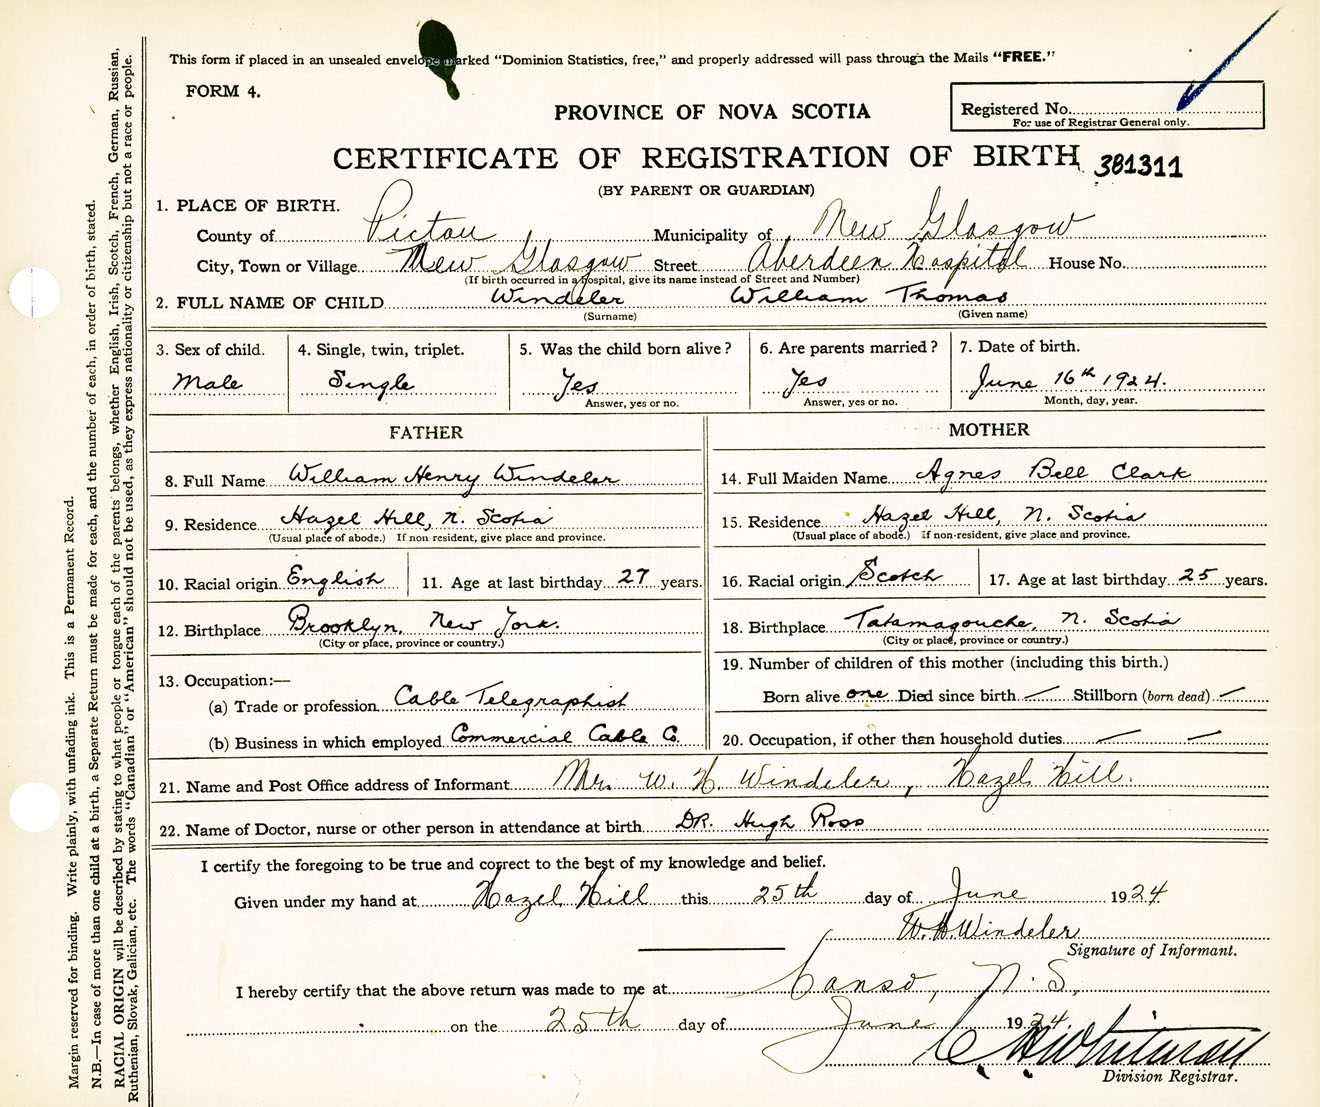 This form if placed in an unsealed envelope marked "Dominion Statistics, free," and properly addressed will pass through the Mails "FREE."
FORM 4.
PROVINCE OF NOVA SCOTIA
Registered No.
For use of Registrar General only.
CERTIFICATE OF REGISTRATION OF BIRTH 381311
(BY PARENT OR GUARDIAN)
1. PLACE OF BIRTH.
County of Pictou Municipality of New Glasgow
City, Town or Village New Glasgow Street Aberdeen Hospital House No.
(If birth occurred in a hospital, give its name instead of Street and Number)
2. FULL NAME OF CHILD Windeler William Thomas
(Surname) (Given name)
3. Sex of child. 4. Single, twin, triplet. 5. Was the child born alive? 6. Are parents married? 7. Date of birth.
Male Single Yes Yes June 16th 1924.
Answer, yes or no. Answer, yes or no. Month, day, year.
FATHER
8. Full Name William Henry Windeler
9. Residence Hazel Hill, N. Scotia
(Usual place of abode.) If non-resident, give place and province.
10. Racial origin English 11. Age at last birthday 27 years.
12. Birthplace Brooklyn, New York.
(City or place, province or country.)
13. Occupation:—
(a) Trade or profession Cable Telegraphist
(b) Business in which employed Commercial Cable Co.
MOTHER
14. Full Maiden Name Agnes Bell Clark
15. Residence Hazel Hill, N. Scotia
(Usual place of abode.) If non-resident, give place and province.
16. Racial origin Scotch 17. Age at last birthday 25 years.
18. Birthplace Tatamagouche, N. Scotia
(City or place, province or country.)
19. Number of children of this mother (including this birth.)
Born alive one Died since birth — Stillborn (born dead) —
20. Occupation, if other than household duties — —
21. Name and Post Office address of Informant Mr. W. H. Windeler, Hazel Hill.
22. Name of Doctor, nurse or other person in attendance at birth DR. Hugh Ross
I certify the foregoing to be true and correct to the best of my knowledge and belief.
Given under my hand at Hazel Hill this 25th day of June 1924
W. H. Windeler
Signature of Informant.
I hereby certify that the above return was made to me at Canso, N. S,
on the 25th day of June 1924
C H Whitman
Division Registrar.
Margin reserved for binding. Write plainly, with unfading ink. This is a Permanent Record.
N.B.—In case of more than one child at a birth, a Separate Return must be made for each, and the number of each, in order of birth, stated.
RACIAL ORIGIN will be described by stating to what people or tongue each of the parents belongs, whether English, Irish, Scotch, French, German, Russian,
Ruthenian, Slovak, Galician, etc. The words "Canadian" or "American" should not be used, as they express nationality or citizenship but not a race or people.